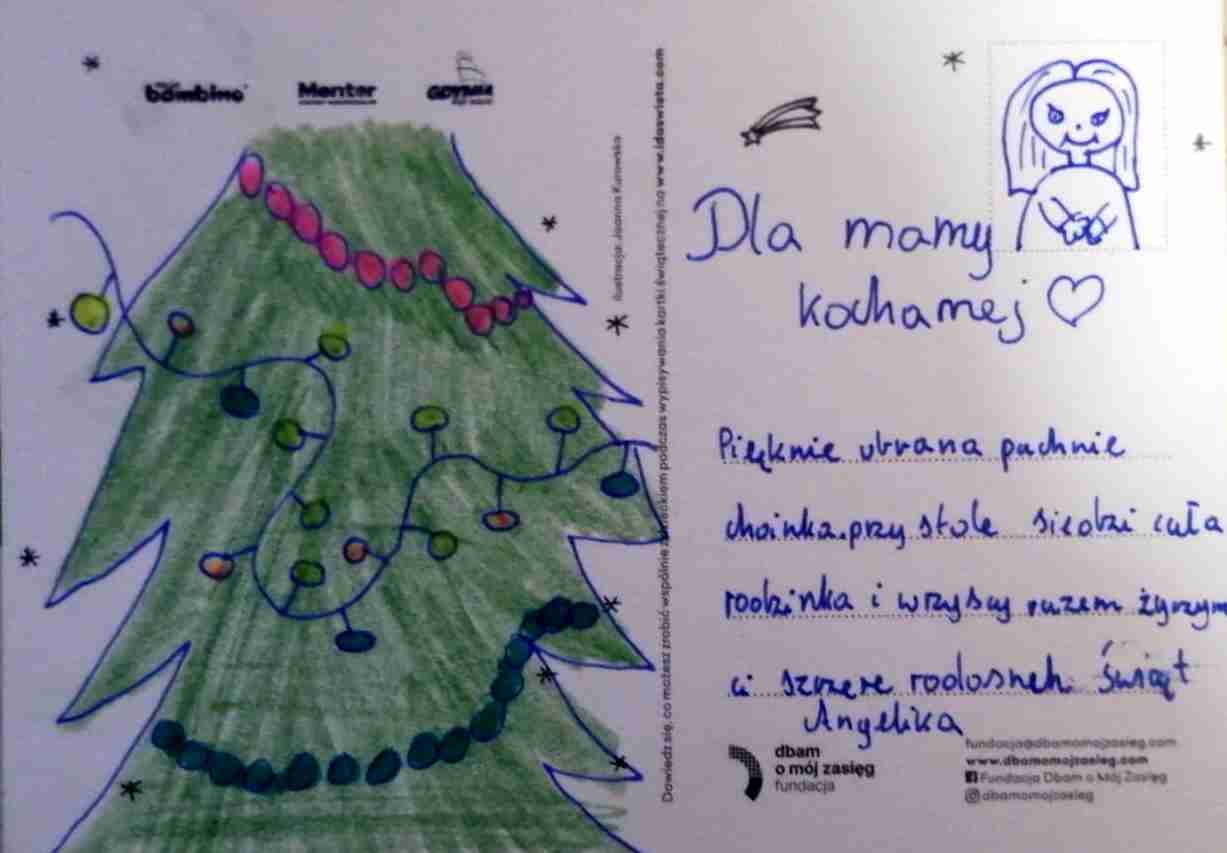 bambino
Mentor
GDYNIA
Ilustracja: Joanna Kurowska
Dowiedz się, co możesz zrobić wspólnie z dzieckiem podczas wypisywania kartki świątecznej na www.idaswieta.com
Dla mamy
kochanej
Pięknie ubrana pachnie
choinka.przy stole siedzi cała
rodzinka i wrzyscy razem żyrzym
ci szczere radosneh Świąt
Angelika
dbam
o mój zasięg
fundacja
fundacja@dbamomojzasieg.com
www.dbamomojzasieg.com
Fundacja Dbam o Mój Zasięg
dbamomojzasieg